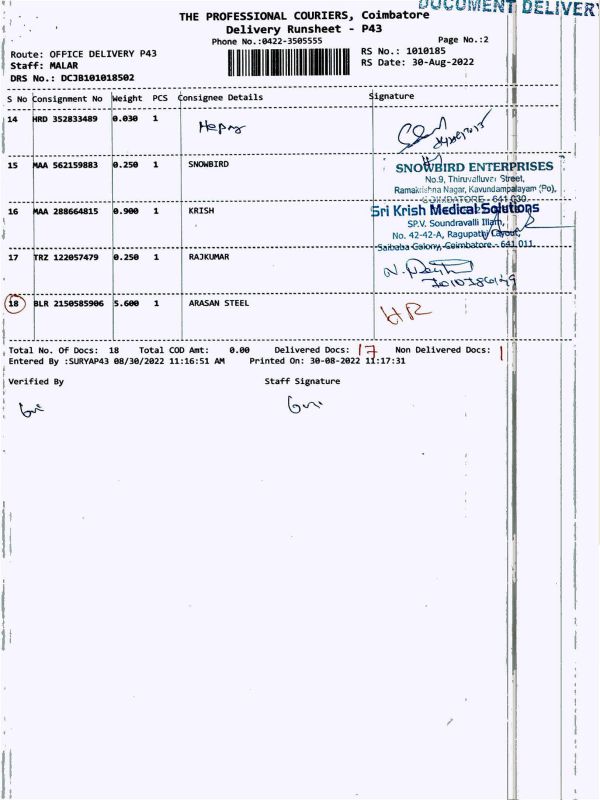 DOCUMENT DELIVERY
THE PROFESSIONAL COURIERS, Coimbatore
Delivery Runsheet - P43
Phone No.:0422-3505555
Page No.:2
Route: OFFICE DELIVERY P43
RS No.: 1010185
Staff: MALAR
RS Date: 30-Aug-2022
DRS No.: DCJB101018502
S No Consignment No Weight PCS Consignee Details Signature
14 HRD 352833489 0.030 1
15 MAA 562159883 0.250 1 SNOWBIRD
SNOWBIRD ENTERPRISES
No.9, Thiruvalluvar Street,
Ramakrishna Nagar, Kavundampalayam (Po),
COIMBATORE - 641 030
16 MAA 288664815 0.900 1 KRISH
Sri Krish Medical Solutions
SP.V. Soundravalli Illam,
No. 42-42-A, Ragupathi Layout,
Saibaba Colony, Coimbatore - 641 011
17 TRZ 122057479 0.250 1 RAJKUMAR
18 BLR 2150585906 5.600 1 ARASAN STEEL HR
Total No. Of Docs: 18 Total COD Amt: 0.00 Delivered Docs: 17 Non Delivered Docs: 1
Entered By :SURYAP43 08/30/2022 11:16:51 AM Printed On: 30-08-2022 11:17:31
Verified By Staff Signature